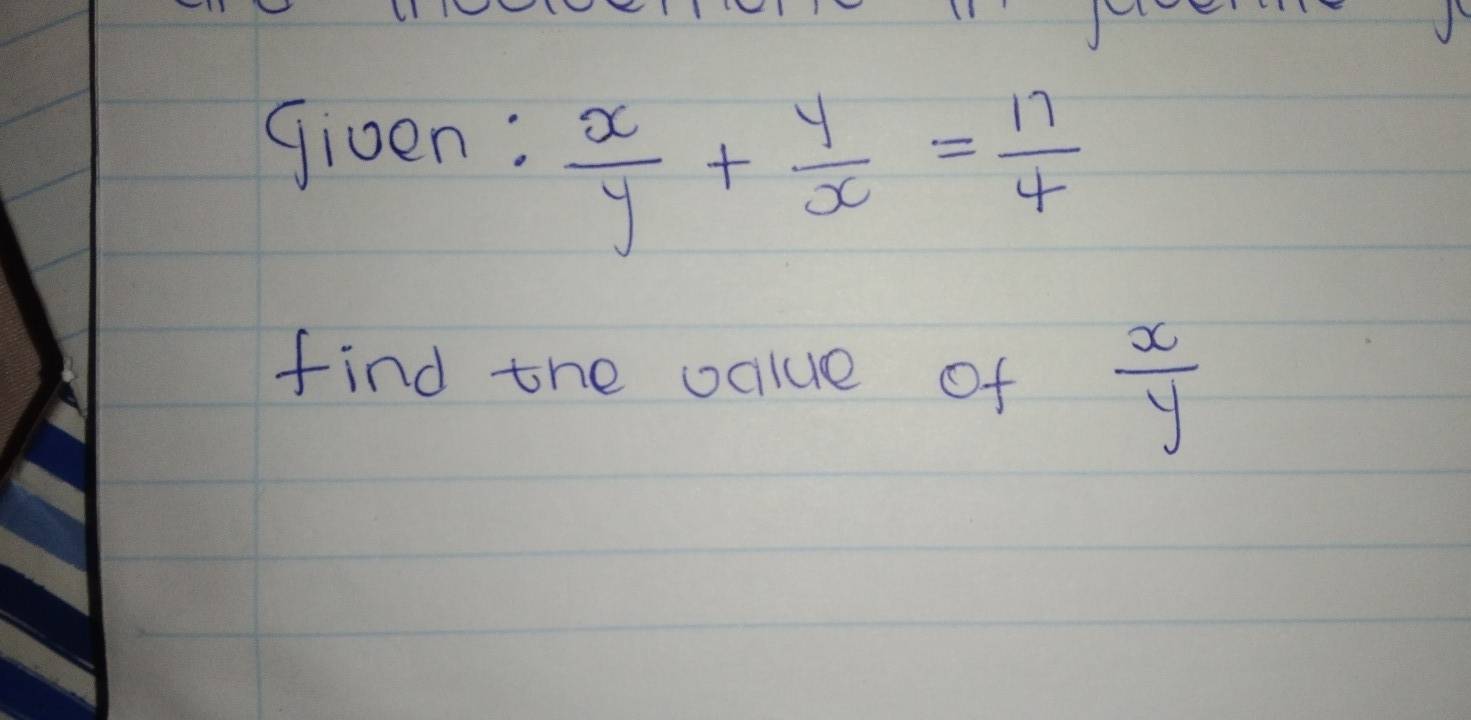 Given: x/y + y/x = 17/4
find the value of x/y